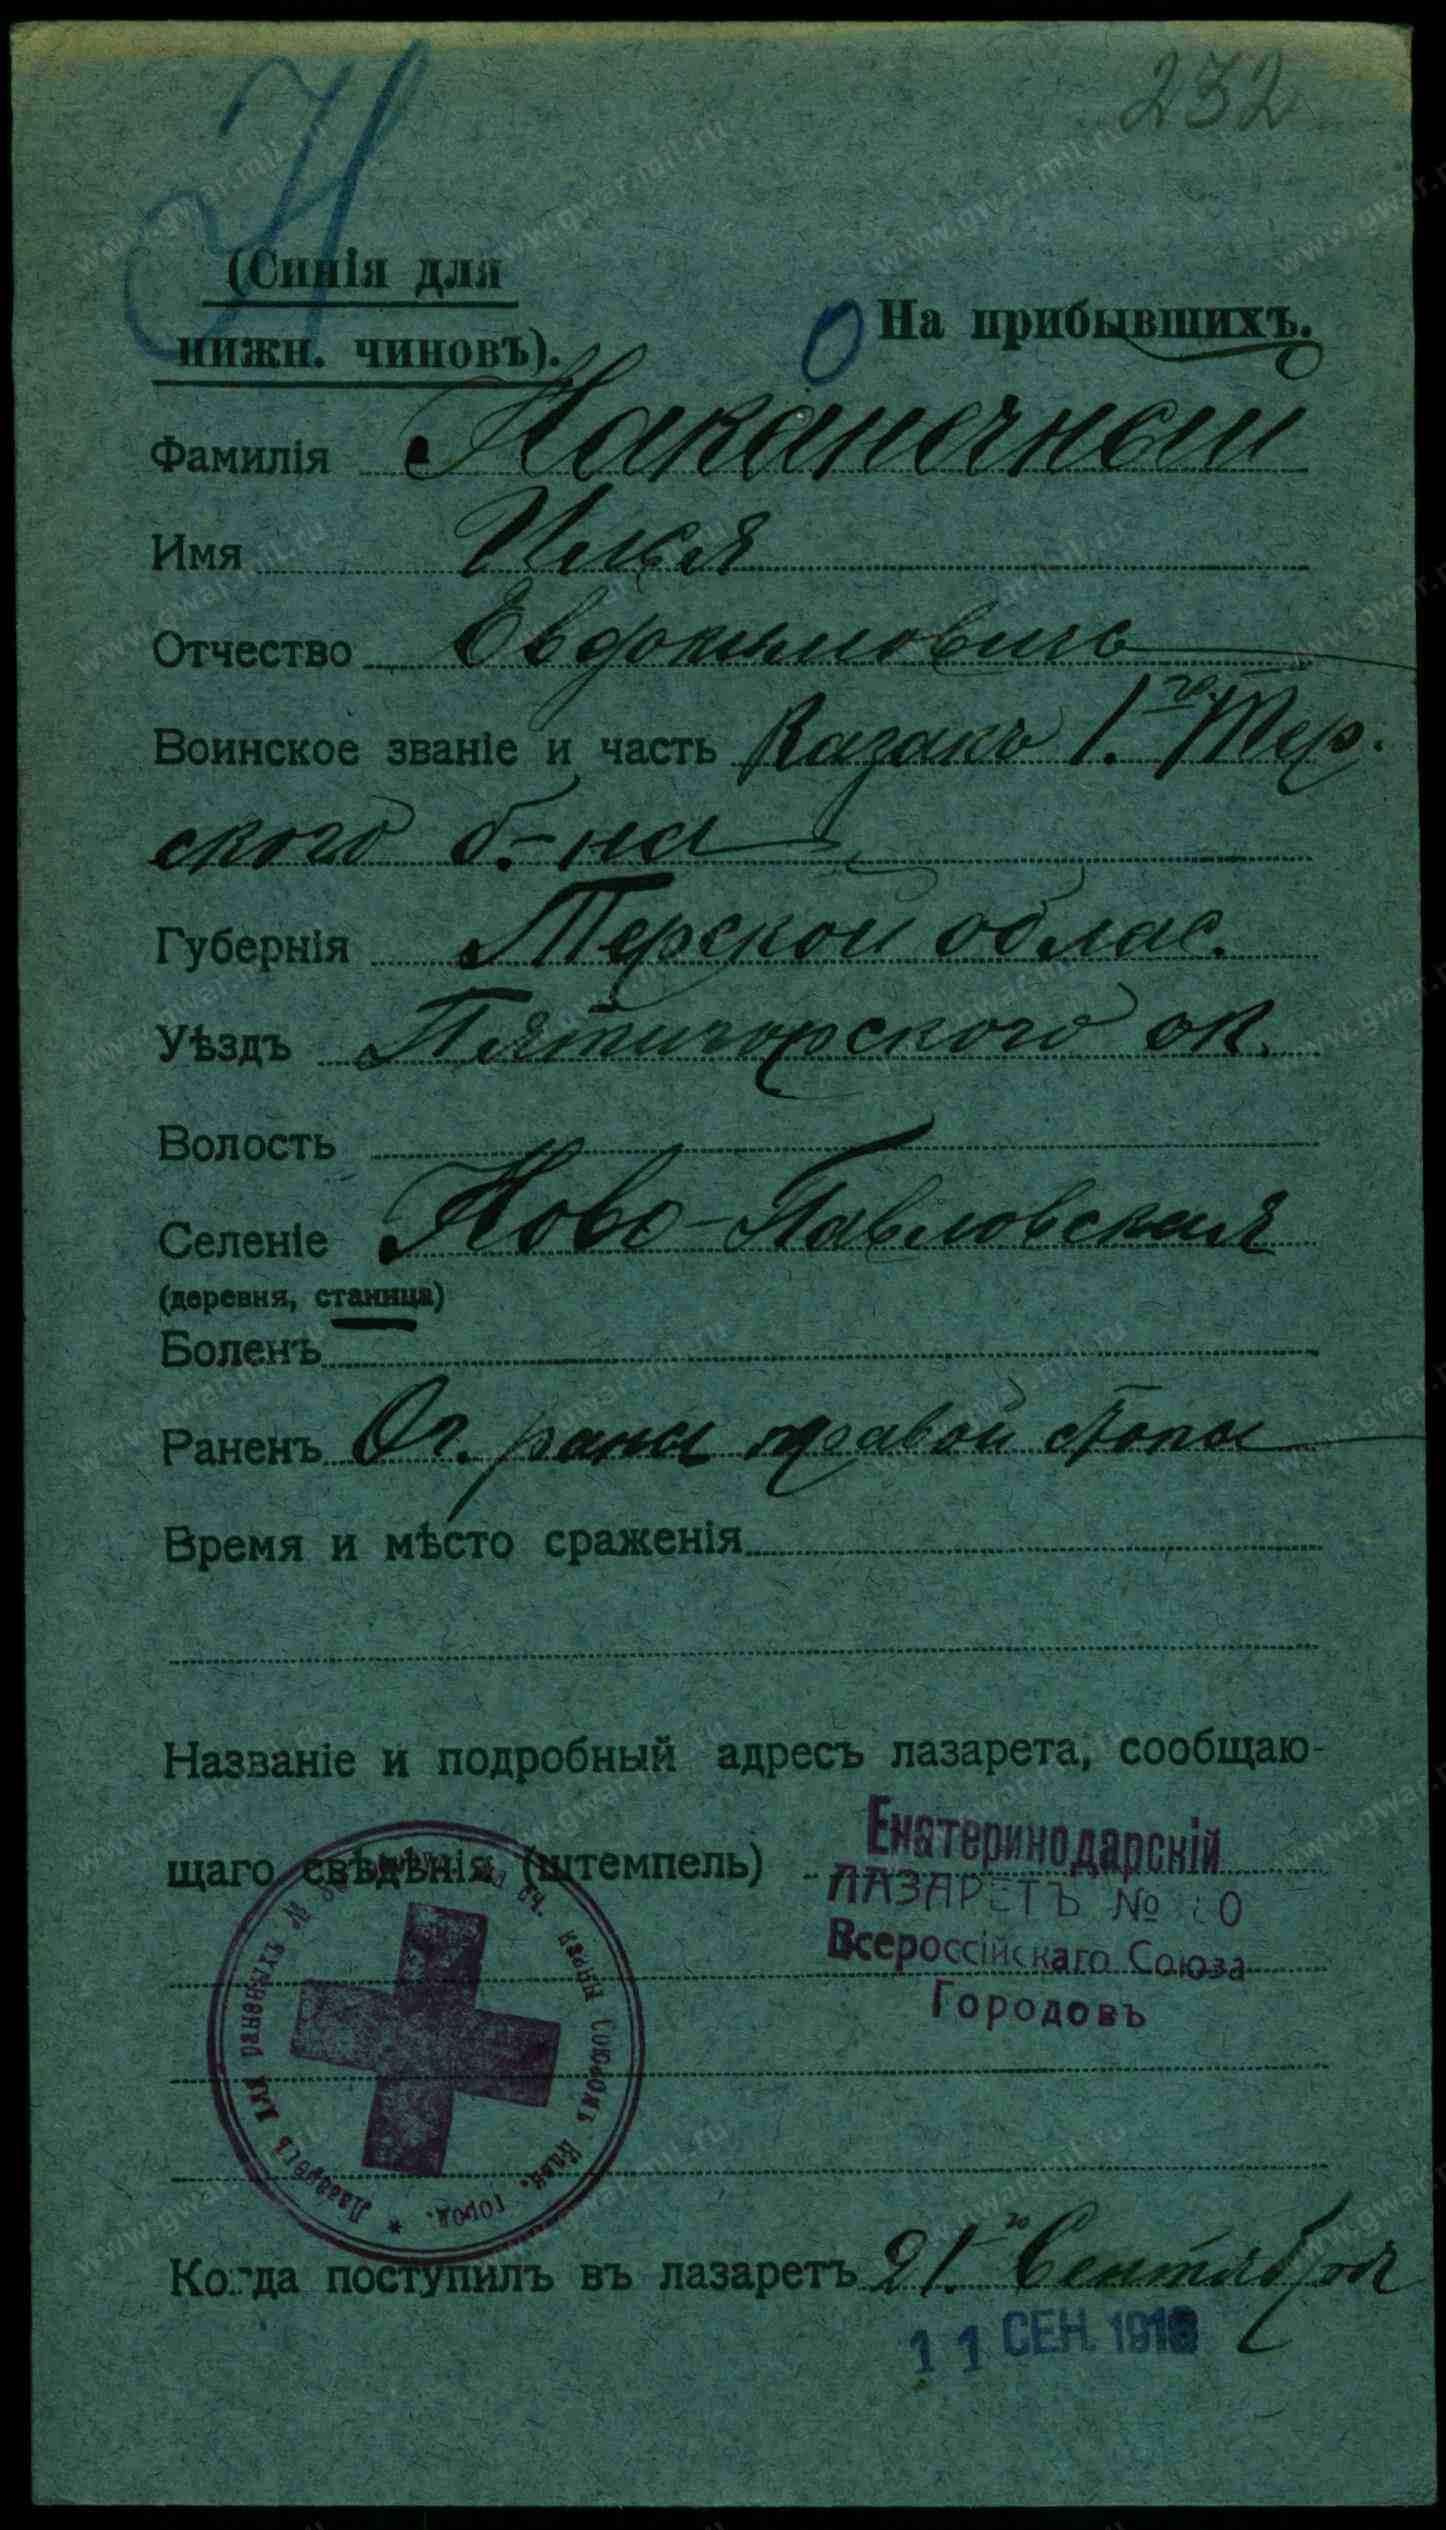 Н
232
(Синія для
нижн. чиновъ).
О На прибывшихъ.
Фамилія Наконечный
Имя Илья
Отчество Евдокимовичъ
Воинское званіе и часть Казакъ 1.го Тер.
ского б.-на
Губернія Терской облас.
Уѣздъ Пятигорского ок.
Волость
Селеніе Ново-Павловская
(деревня, станица)
Боленъ
Раненъ Ог. рана правой стопы
Время и мѣсто сраженія
Названіе и подробный адресъ лазарета, сообщаю-
щаго свѣдѣнія (штемпель)
Екатеринодарскій
ЛАЗАРЕТЪ №
Всероссійскаго Союза
Городовъ
Лазаретъ для раненыхъ №
Союзомъ
город.
Когда поступилъ въ лазаретъ 21.го Сентября
11 СЕН. 1916
www.gwar.mil.ru